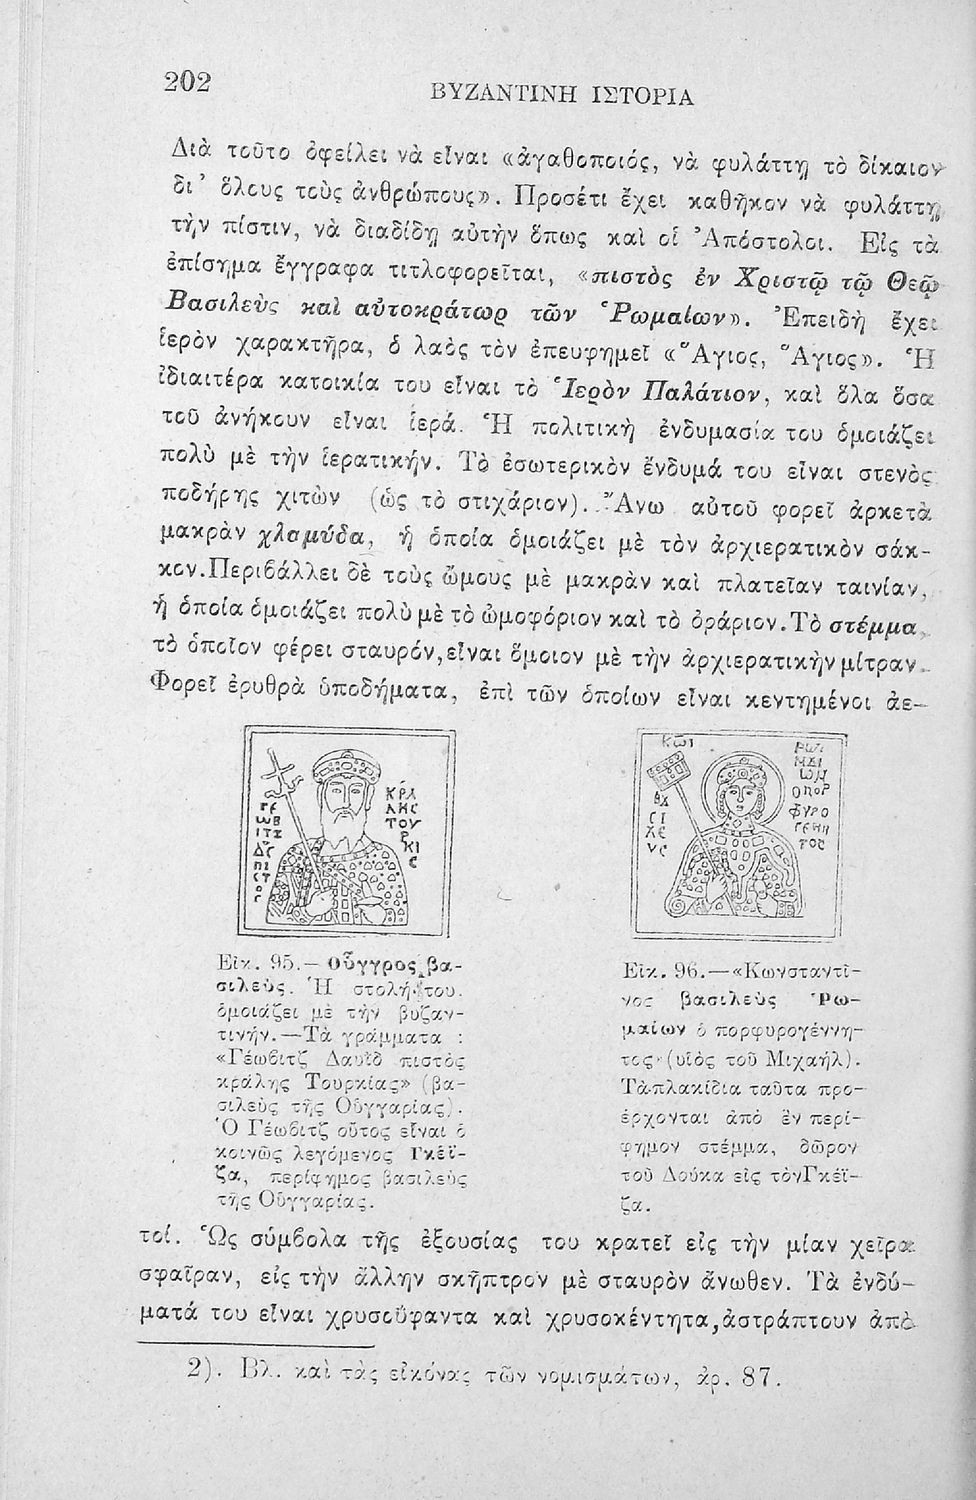 202
ΒΥΖΑΝΤΙΝΗ ΙΣΤΟΡΙΑ
Διὰ τοῦτο ὀφείλει νὰ εἶναι «ἀγαθοποιός, νὰ φυλάττῃ τὸ δίκαιον
δι᾿ ὅλους τοὺς ἀνθρώπους». Προσέτι ἔχει καθῆκον νὰ φυλάττῃ
τὴν πίστιν, νὰ διαδίδῃ αὐτὴν ὅπως καὶ οἱ Ἀπόστολοι. Εἰς τὰ
ἐπίσημα ἔγγραφα τιτλοφορεῖται, «πιστὸς ἐν Χριστῷ τῷ Θεῷ
Βασιλεὺς καὶ αὐτοκράτωρ τῶν Ῥωμαίων». Ἐπειδὴ ἔχει
ἱερὸν χαρακτῆρα, ὁ λαὸς τὸν ἐπευφημεῖ «Ἅγιος, Ἅγιος». Ἡ
ἰδιαιτέρα κατοικία του εἶναι τὸ Ἱερὸν Παλάτιον, καὶ ὅλα ὅσα
τοῦ ἀνήκουν εἶναι ἱερά. Ἡ πολιτικὴ ἐνδυμασία του ὁμοιάζει
πολὺ μὲ τὴν ἱερατικήν. Τὸ ἐσωτερικὸν ἔνδυμά του εἶναι στενὸς
ποδήρης χιτὼν (ὡς τὸ στιχάριον). Ἄνω αὐτοῦ φορεῖ ἀρκετὰ
μακρὰν χλαμύδα, ἡ ὁποία ὁμοιάζει μὲ τὸν ἀρχιερατικὸν σάκ-
κον. Περιβάλλει δὲ τοὺς ὤμους μὲ μακρὰν καὶ πλατεῖαν ταινίαν,
ἡ ὁποία ὁμοιάζει πολὺ μὲ τὸ ὠμοφόριον καὶ τὸ ὀράριον. Τὸ στέμμα,
τὸ ὁποῖον φέρει σταυρόν, εἶναι ὅμοιον μὲ τὴν ἀρχιερατικὴν μίτραν.
Φορεῖ ἐρυθρὰ ὑποδήματα, ἐπὶ τῶν ὁποίων εἶναι κεντημένοι ἀε-
ΓΕ
ΩΒ
ΙΤΖ
ΠΙ
ΚΡΑ
ΛΗC
ΤΟΥ
Ρ
ΚΙ
C
ΚΩΙ
ΒΑ
CΙ
ΛΕ
ΥC
ΡΩ
ΜΑΙ
ΩΝ
ΟΠΟΡ
ΦΥΡΟ
ΓΕΝΗ
ΤΟC
Εἰκ. 95.— Οὗγγρος βα-
σιλεύς. Ἡ στολή του
ὁμοιάζει μὲ τὴν βυζαν-
τινήν.—Τὰ γράμματα :
«Γέωβιτζ Δαυῒδ πιστὸς
κράλης Τουρκίας» (βα-
σιλεὺς τῆς Οὑγγαρίας).
Ὁ Γέωβιτζ οὗτος εἶναι ὁ
κοινῶς λεγόμενος Γκέϊ-
ζα, περίφημος βασιλεὺς
τῆς Οὑγγαρίας.
Εἰκ. 96.—«Κωνσταντῖ-
νος βασιλεὺς Ῥω-
μαίων ὁ πορφυρογέννη-
τος» (υἱὸς τοῦ Μιχαήλ).
Τὰ πλακίδια ταῦτα προ-
έρχονται ἀπὸ ἓν περί-
φημον στέμμα, δῶρον
τοῦ Δούκα εἰς τὸν Γκέϊ-
ζα.
τοί. Ὡς σύμβολα τῆς ἐξουσίας του κρατεῖ εἰς τὴν μίαν χεῖρα
σφαῖραν, εἰς τὴν ἄλλην σκῆπτρον μὲ σταυρὸν ἄνωθεν. Τὰ ἐνδύ-
ματά του εἶναι χρυσοΰφαντα καὶ χρυσοκέντητα, ἀστράπτουν ἀπὸ
2). Βλ. καὶ τὰς εἰκόνας τῶν νομισμάτων, ἀρ. 87.